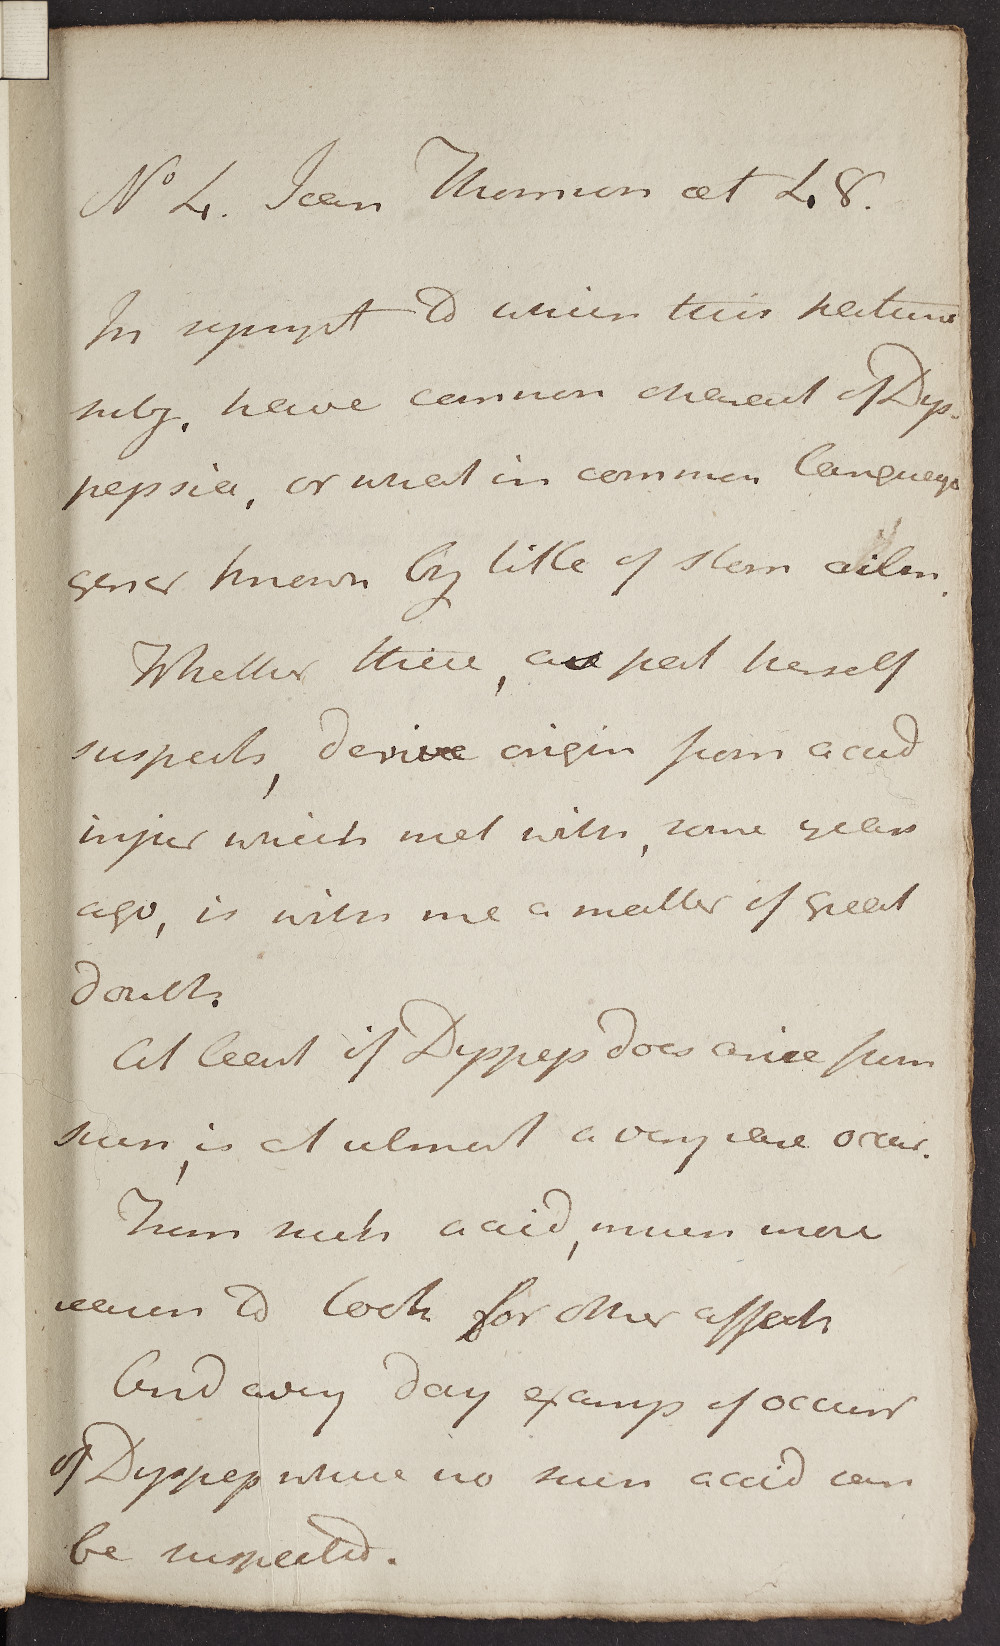 No 4. Jean Thomson aet 48.
In sympt to which this patient
subj. have common charact of Dys-
pepsia, or what in common language
gener known by title of stom ailm.
Whether these, as pat herself
suspects, derive origin from accid
injur which met with, some years
ago, is with me a matter of great
doubt.
At least if Dyspeps does arise from
such, is at utmost a very rare occur.
From such accid, much more
reason to look for other affects
And every day examp of occurr
of Dyspep where no such accid can
be suspected.